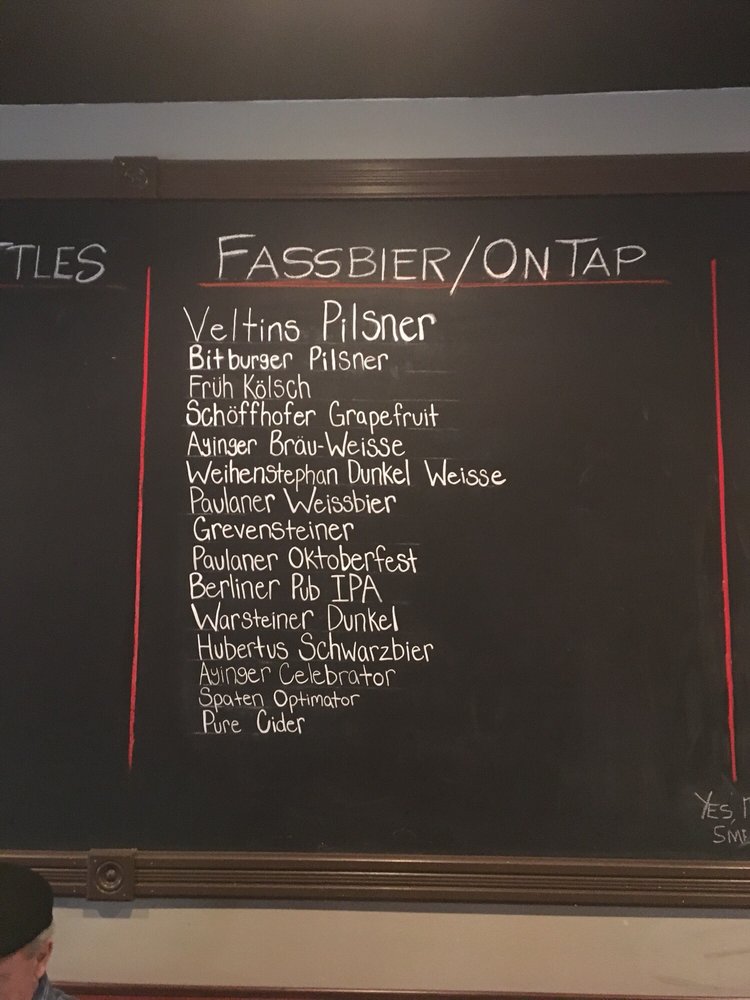 TLES
FASSBIER/ON TAP
Veltins Pilsner
Bitburger Pilsner
Früh Kölsch
Schöffhofer Grapefruit
Ayinger Bräu-Weisse
Weihenstephan Dunkel Weisse
Paulaner Weissbier
Grevensteiner
Paulaner Oktoberfest
Berliner Pub IPA
Warsteiner Dunkel
Hubertus Schwarzbier
Ayinger Celebrator
Spaten Optimator
Pure Cider
YES,